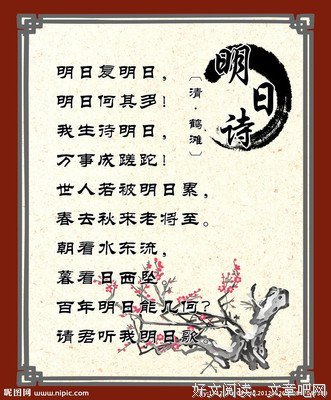 明日诗
〔清·鹤滩〕
明日复明日，
明日何其多！
我生待明日，
万事成蹉跎！
世人若被明日累，
春去秋来老将至。
朝看水东流，
暮看日西坠
百年明日能几何？
请君听我明日歌
好文阅读－文章吧网
昵图网 www.nipic.com